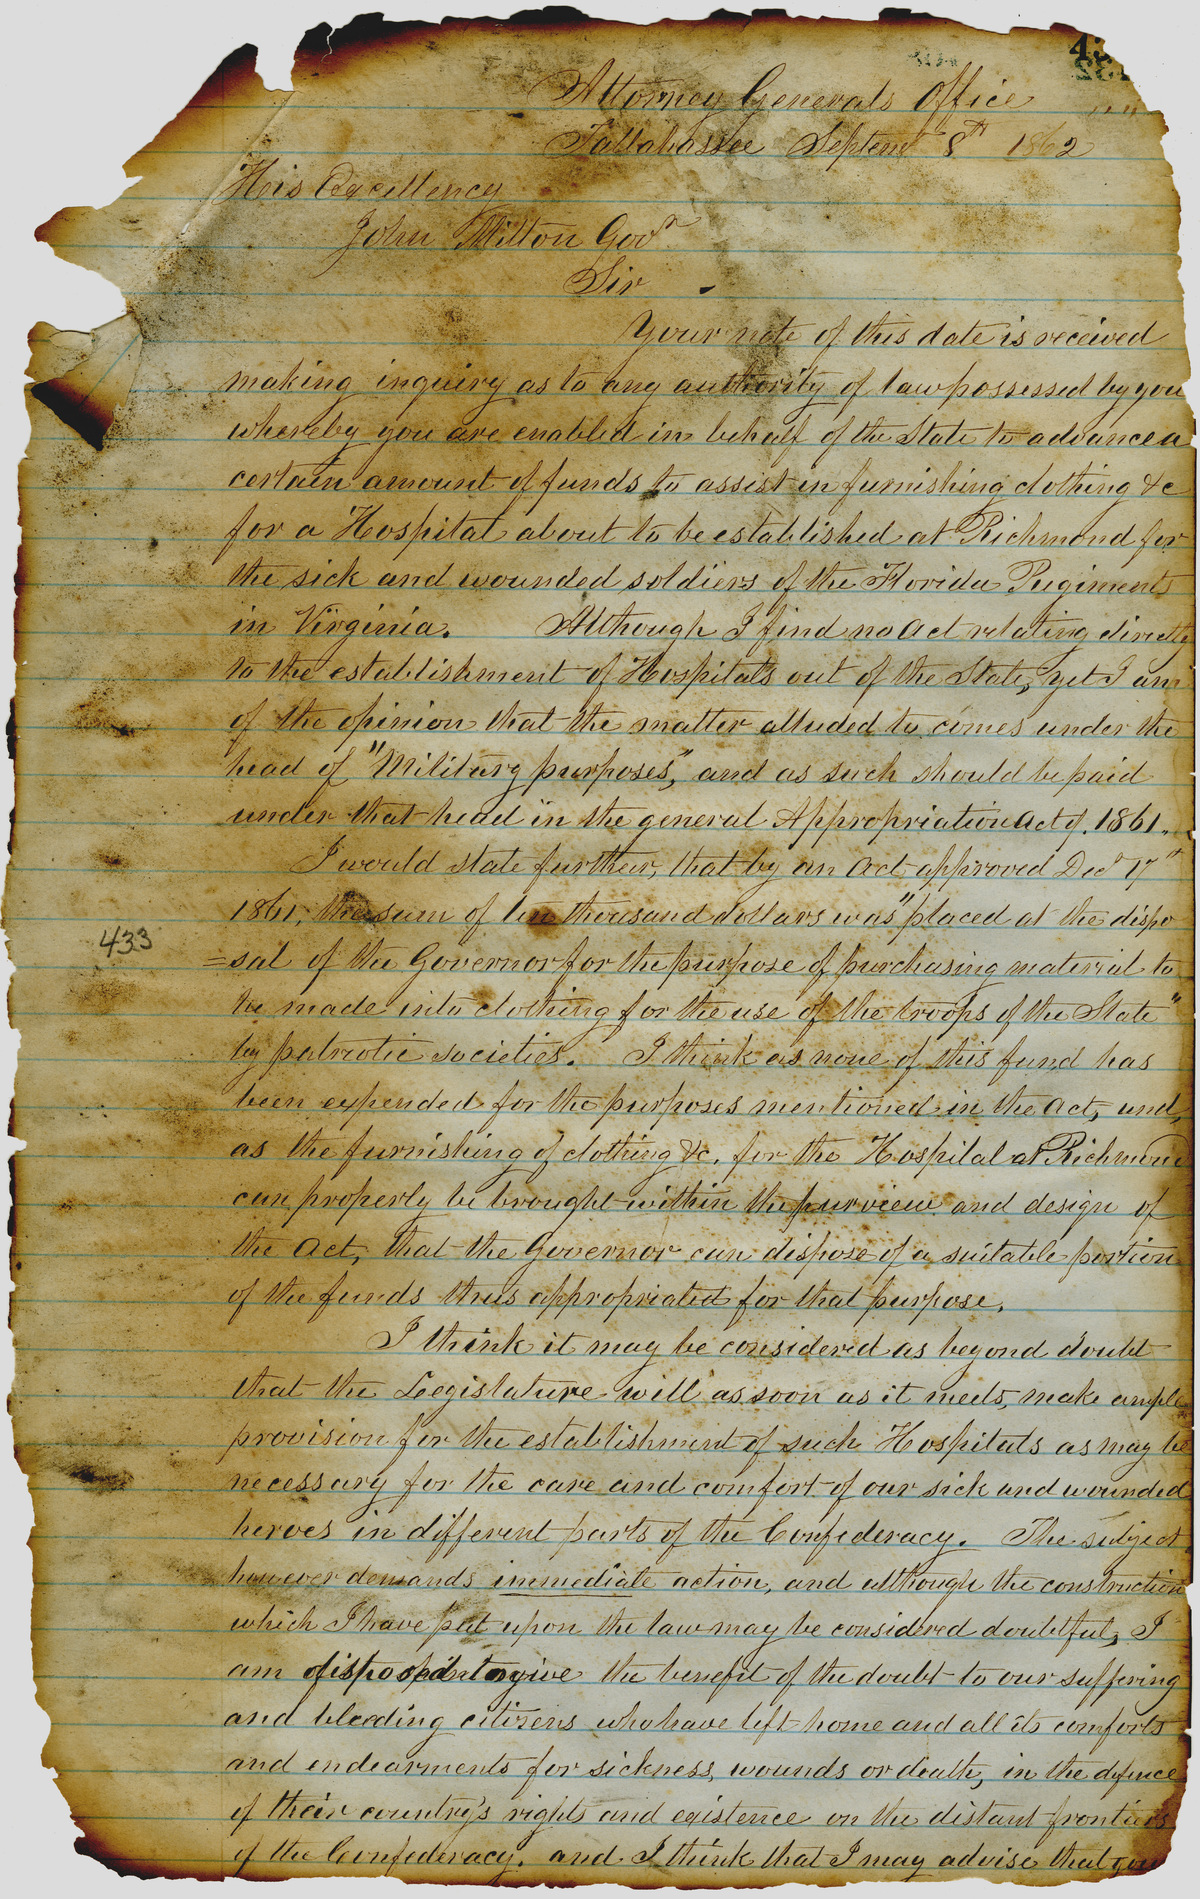 Attorney Generals Office
Tallahassee Septemr 8th 1862
His Excellency
John Milton Govr
Sir
Your note of this date is received
making inquiry as to any authority of law possessed by you
whereby you are enabled in behalf of the State to advance a
certain amount of funds to assist in furnishing clothing &c
for a Hospital about to be established at Richmond for
the sick and wounded soldiers of the Florida Regiments
in Virginia. Although I find no Act relating directly
to the establishment of Hospitals out of the State, yet I am
of the opinion that the matter alluded to comes under the
head of "Military purposes," and as such should be paid
under that head in the general Appropriation Act of 1861.
I would state further, that by an Act approved Decr 17th
1861, the sum of ten thousand dollars was "placed at the dispo
433
=sal of the Governor for the purpose of purchasing material to
be made into clothing for the use of the troops of the State"
by patriotic societies. I think as none of this fund has
been expended for the purposes mentioned in the Act, and,
as the furnishing of clothing &c. for the Hospital at Richmond
can properly be brought within the purview and design of
the Act, that the Governor can dispose of a suitable portion
of the funds thus appropriated for that purpose.
I think it may be considered as beyond doubt
that the Legislature will as soon as it meets, make ample
provision for the establishment of such Hospitals as may be
necessary for the care and comfort of our sick and wounded
heroes in different parts of the Confederacy. The subject
however demands immediate action, and although the construction
which I have put upon the law may be considered doubtful, I
am give the benefit of the doubt to our suffering
and bleeding citizens who have left home and all its comforts
and endearments for sickness, wounds or death, in the defence
of their country's rights and existence on the distant frontiers
of the Confederacy. and I think that I may advise that you